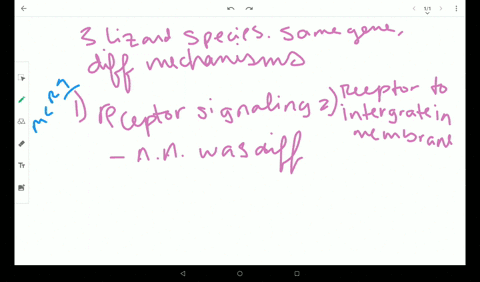 3 lizard species. Same gene,
diff mechanisms
mcR1
1) receptor signaling
- n.n. was diff
2) Receptor to
intergrate in
membrane
1/1
Tт